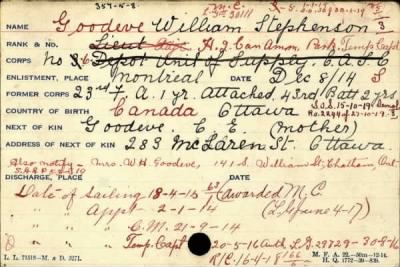 357-5-8 M.C.
L.G. 30111
NAME Goodeve William Stephenson
RANK & NO. Lieut H.Q. Cdn. Art. Temp Capt
CORPS No 3 Depot Unit of Supply. C.A.S.C
ENLISTMENT, PLACE Montreal DATE Dec 8/14 S
FORMER CORPS 23rd F.A. 1 yr. Attached 43rd Batt 2 yrs
S.O.S. 15-10-19
COUNTRY OF BIRTH Canada Ottawa
NEXT OF KIN Goodeve, C. E. (mother)
ADDRESS OF NEXT OF KIN 283 McLaren St. Ottawa.
Also notify - Mrs. W. H. Goodeve, 141 S. William St, Chatham, Ont
DISCHARGE, PLACE DATE
Date of Sailing 18-4-15 (Awarded M.C
" " Appt 2-1-14 (L.G. June 4-17)
" " C.M. 21-9-14
" " Temp. Capt 20-5-16 Auth L.G. 29729-30-8-16
R/C. 16-4-18
L. L. 73518—M. & D. 3271. M. F. A. 22.—50m.—12-14.
H. Q. 1772—39—839.